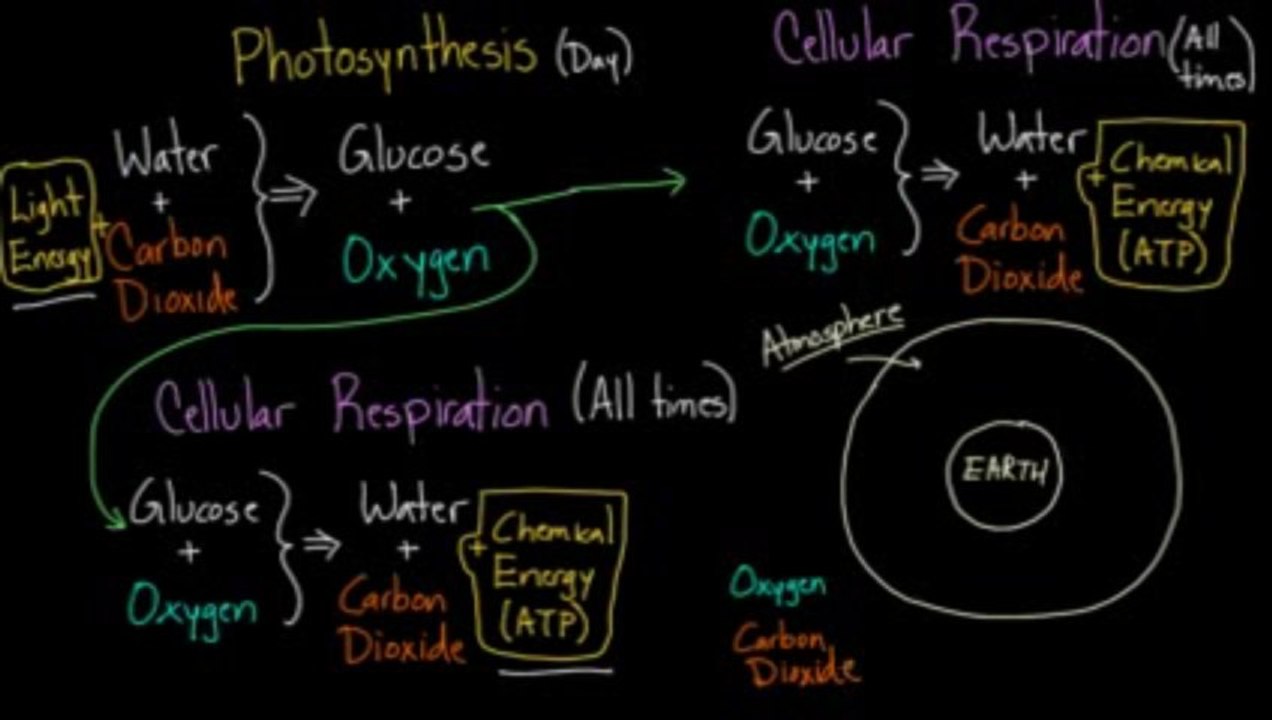 Photosynthesis (Day)
Light
Energy
+
Water
+
Carbon
Dioxide
⇒
Glucose
+
Oxygen
Cellular Respiration (All
times)
Glucose
+
Oxygen
⇒
Water
+
Carbon
Dioxide
+
Chemical
Energy
(ATP)
Cellular Respiration (All times)
Glucose
+
Oxygen
⇒
Water
+
Carbon
Dioxide
+
Chemical
Energy
(ATP)
Atmosphere
EARTH
Oxygen
Carbon
Dioxide